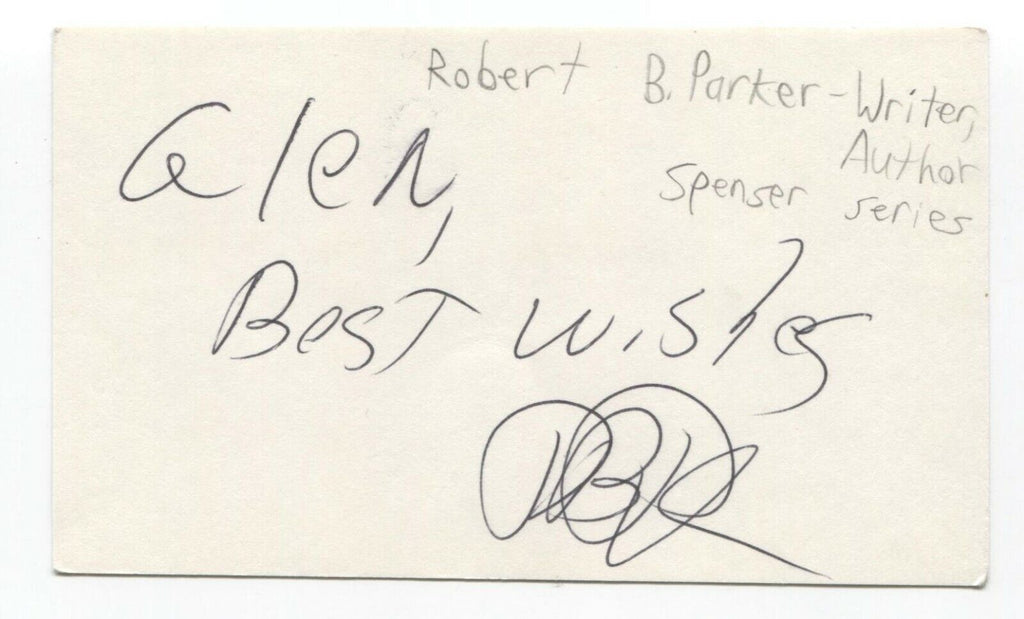 Robert B. Parker - Writer,
Author
Spenser series
Glen,
Best wishes
RBP